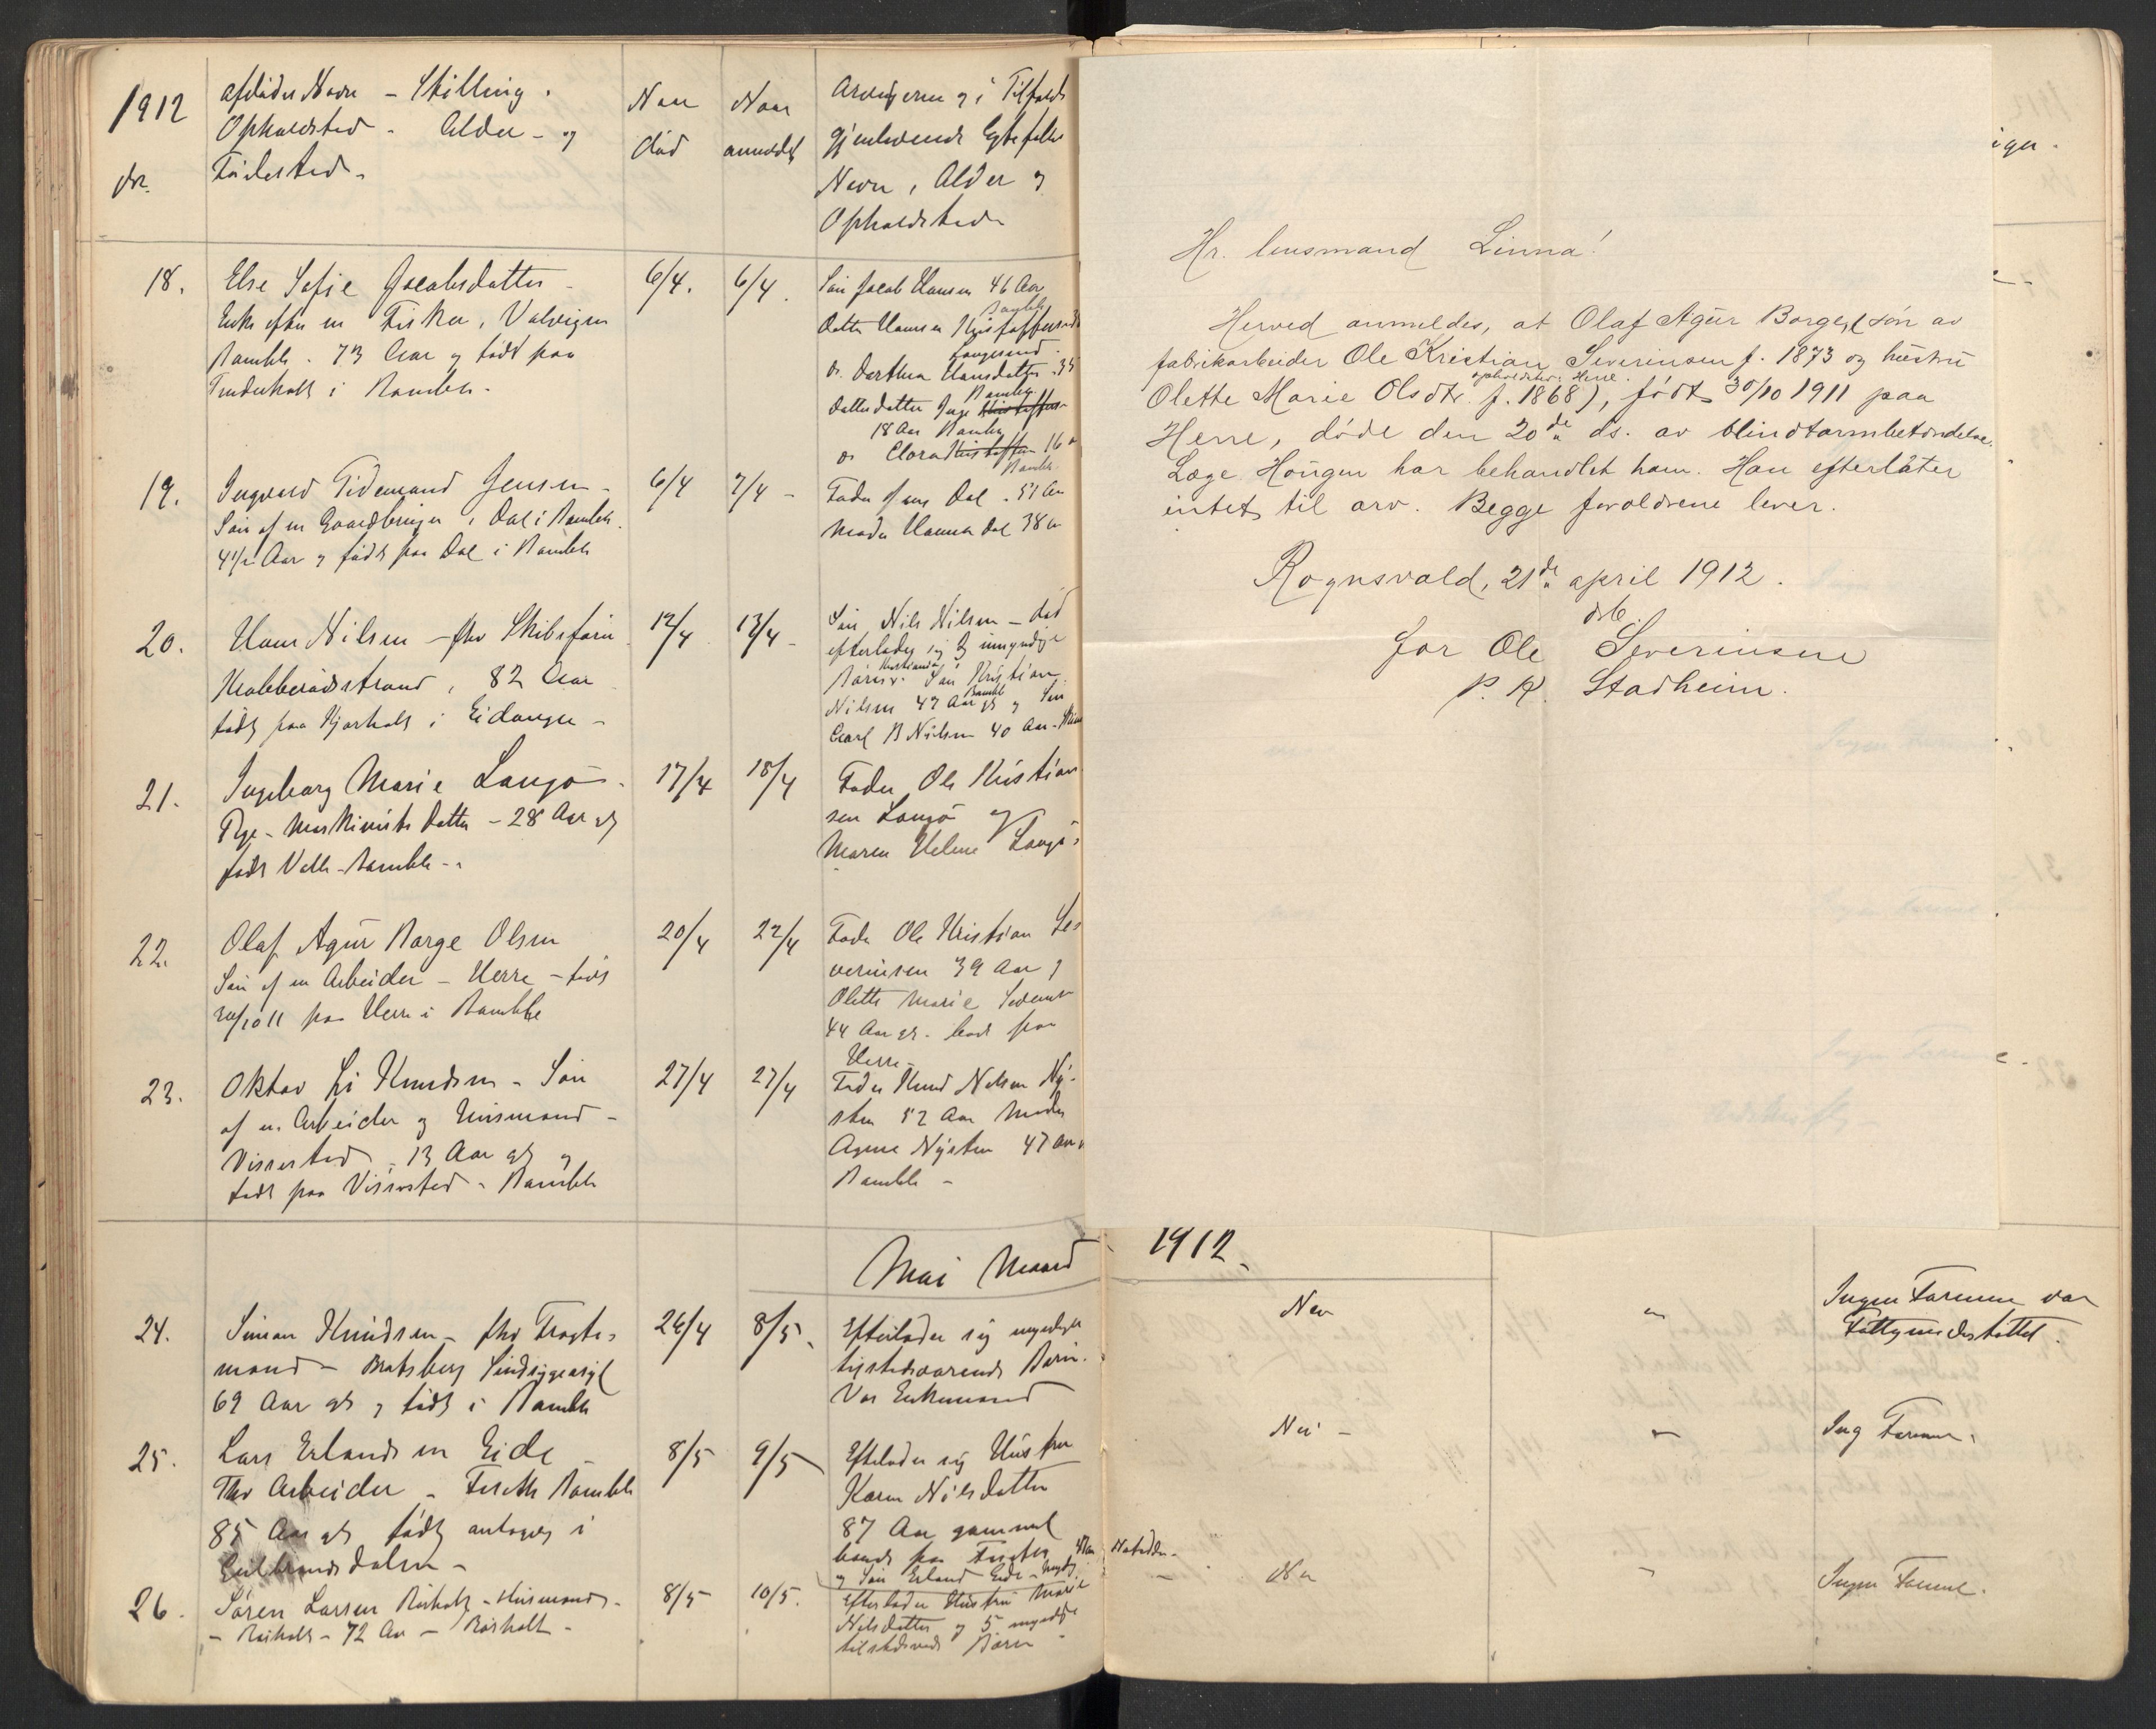 1912
Nr.
afdødes Navn - Stilling.
Opholdsted - Alder - og
Fødested -
Naar
død
Naar
anmeldt
Arvingerne og i Tilfælde
gjenlevende Egtefælles
Navn, Alder og
Opholdsted
18.
Else Sofie Jacobsdatter -
Enke efter en Fisker, Valvigen
Bamble. 73 Aar og født paa
i Bamble -
6/4.
6/4.
Søn Jacob Hansen 46 Aar
Bamble
Datter Hansen
Langesund
Do. Dorthea Hansdatter 35
Bamble
Datterdatter Inga
18 Aar Bamble
Do Clara 16
Bamble
19.
Ingvald Tidemand Jensen -
Søn af en Gaardbruger, Dal i Bamble.
4 1/2 Aar og født paa Dal i Bamble
6/4
7/4 -
Fader Jens Dal - 51 Aar
Moder Hanna Dal 38 Aar
20.
Hans Nilsen - fhv Skibsfører
82 Aar
født paa Kjørholt i Eidanger -
12/4
13/4 -
Søn Nils Nilsen - død
efterlader sig umyndige
Børn. Søn Kristian
Nilsen 47 Aar og Søn
Carl B Nilsen 40 Aar -
21.
Ingeborg Marie Langø -
Pige - Maskinists Datter - 28 Aar gl
født Valle - Bamble -
17/4
18/4
Fader Ole Kristian-
sen Langø og
Maren Helene Langø
22.
Olaf Agur Borge Olsen
Søn af en Arbeider - Herre - født
30/10 11 paa Herre i Bamble
20/4
22/4
Fader Ole Kristian Se-
verinsen 39 Aar og
Olette Marie
44 Aar gl. boende paa
Herre -
23.
Oktav Li Knudsen - Søn
af en Arbeider og Husmand -
Vissestad - 13 Aar gl og
født paa Vissestad - Bamble
27/4
27/4
Fader Knud Nilsen Ny-
sten 52 Aar Moder
Agnes Nysten 47 Aar
Bamble -
Mai Maaned
24.
Simon Knudsen - fhv Fragte-
mand - Bratsberg Sindsygeasyl
69 Aar gl og født i Bamble
26/4
8/5.
Efterlader sig myndige
tilstedeværende Børn.
Var Enkemand
25.
Lars Erlandsen Eide
Fhv Arbeider - Bamble
85 Aar gl født antagelig i
Gulbrandsdalen -
8/5
9/5
Efterlader sig Hustru
Karen Nilsdatter
87 Aar gammel
boende paa
og Søn Erland Eide - myndig
26.
Søren Larsen Røsholt - Husmand -
- Røsholt - 72 Aar - Røsholt -
8/5
10/5.
Efterlader Hustru Marie
Nilsdatter og 5 myndige
tilstedeværende Børn
Hr. lensmand Linna!
Herved anmeldes, at Olaf Agur Borge, (søn av
fabrikarbeider Ole Kristian Severinsen f. 1873 og hustru
opholdsted: Herre.
Olette Marie Olsdtr. f. 1868), født 30/10 1911 paa
Herre, døde den 20de ds. av blindtarmbetændelse.
Læge Hougen har behandlet ham. Han efterlater
intet til arv. Begge forældrene lever.
Rognsvald, 21de april 1912.
dst.
for Ole Severinsen
P. K. Stadheim.
1912.
Nei
"
Ingen Formue var
Fattigunderstøttet.
Nei -
"
Ing Formue.
Nei
"
Ingen Formue.